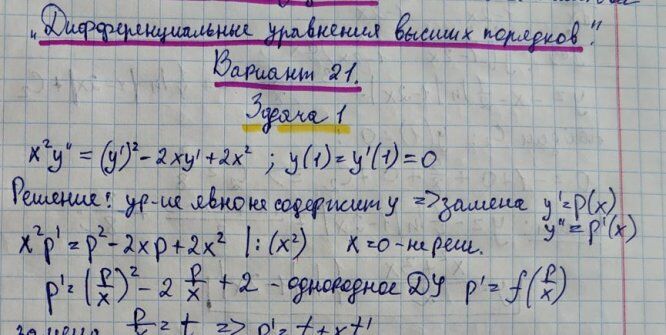 „Дифференциальные уравнения высших порядков".
Вариант 21.
Здача 1
x²y" = (y')² - 2xy' + 2x² ; y(1) = y'(1) = 0
Решение: ур-ие явно не содержит y => замена y' = p(x)
y" = p'(x)
x²p' = p² - 2xp + 2x² |: (x²) x=0 - не реш.
p' = (p/x)² - 2 p/x + 2 - однородное ДУ p' = f(p/x)
замена p/x = t => p' = t + xt'